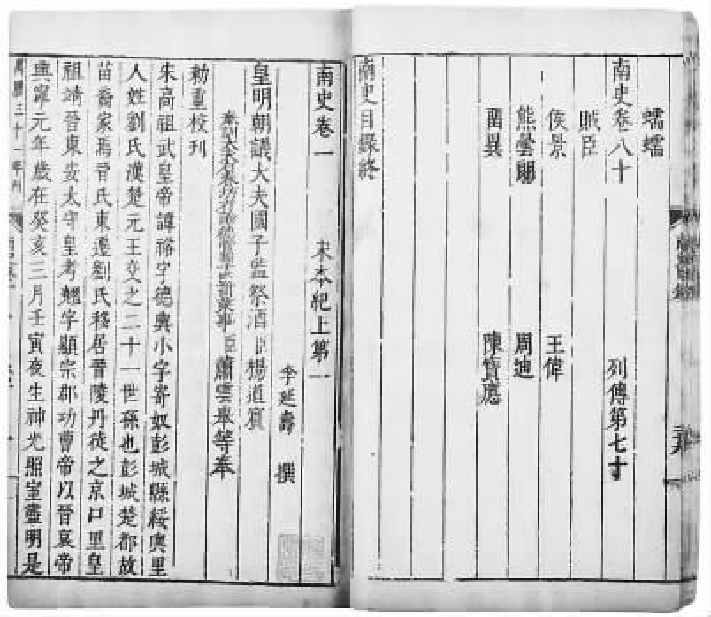 蠕蠕
南史卷八十 列傳第七十
賊臣
侯景 王偉
熊曇朗 周迪
留異 陳寶應
南史目錄終
南史卷一 宋本紀上第一
李延壽 撰
皇明朝議大夫國子監祭酒臣楊道賓
臣蕭雲舉等奉
勑重校刊
宋高祖武皇帝諱裕字德輿小字寄奴彭城縣綏輿里
人姓劉氏漢楚元王交之二十一世孫也彭城楚都故
苗裔家焉晉氏東遷劉氏移居晉陵丹徒之京口里皇
祖靖晉東安太守皇考翹字顯宗郡功曹帝以晉哀帝
興寧元年歲在癸亥三月壬寅夜生神光照室盡明是
三十一年刊